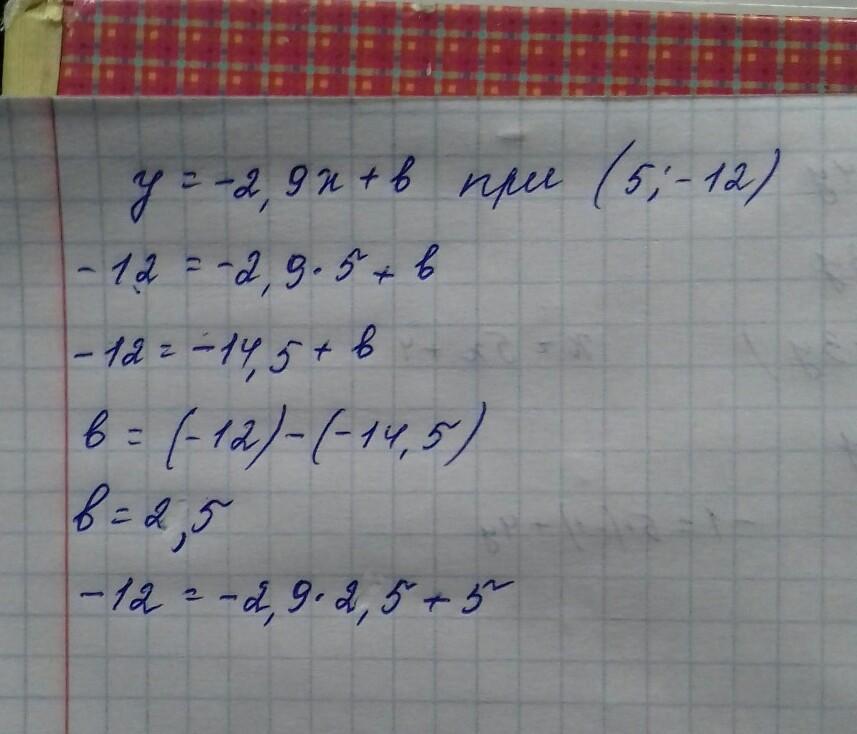 y = -2,9x + в при (5; -12)
-12 = -2,9·5 + в
-12 = -14,5 + в
в = (-12) - (-14,5)
в = 2,5
-12 = -2,9·2,5 + 5